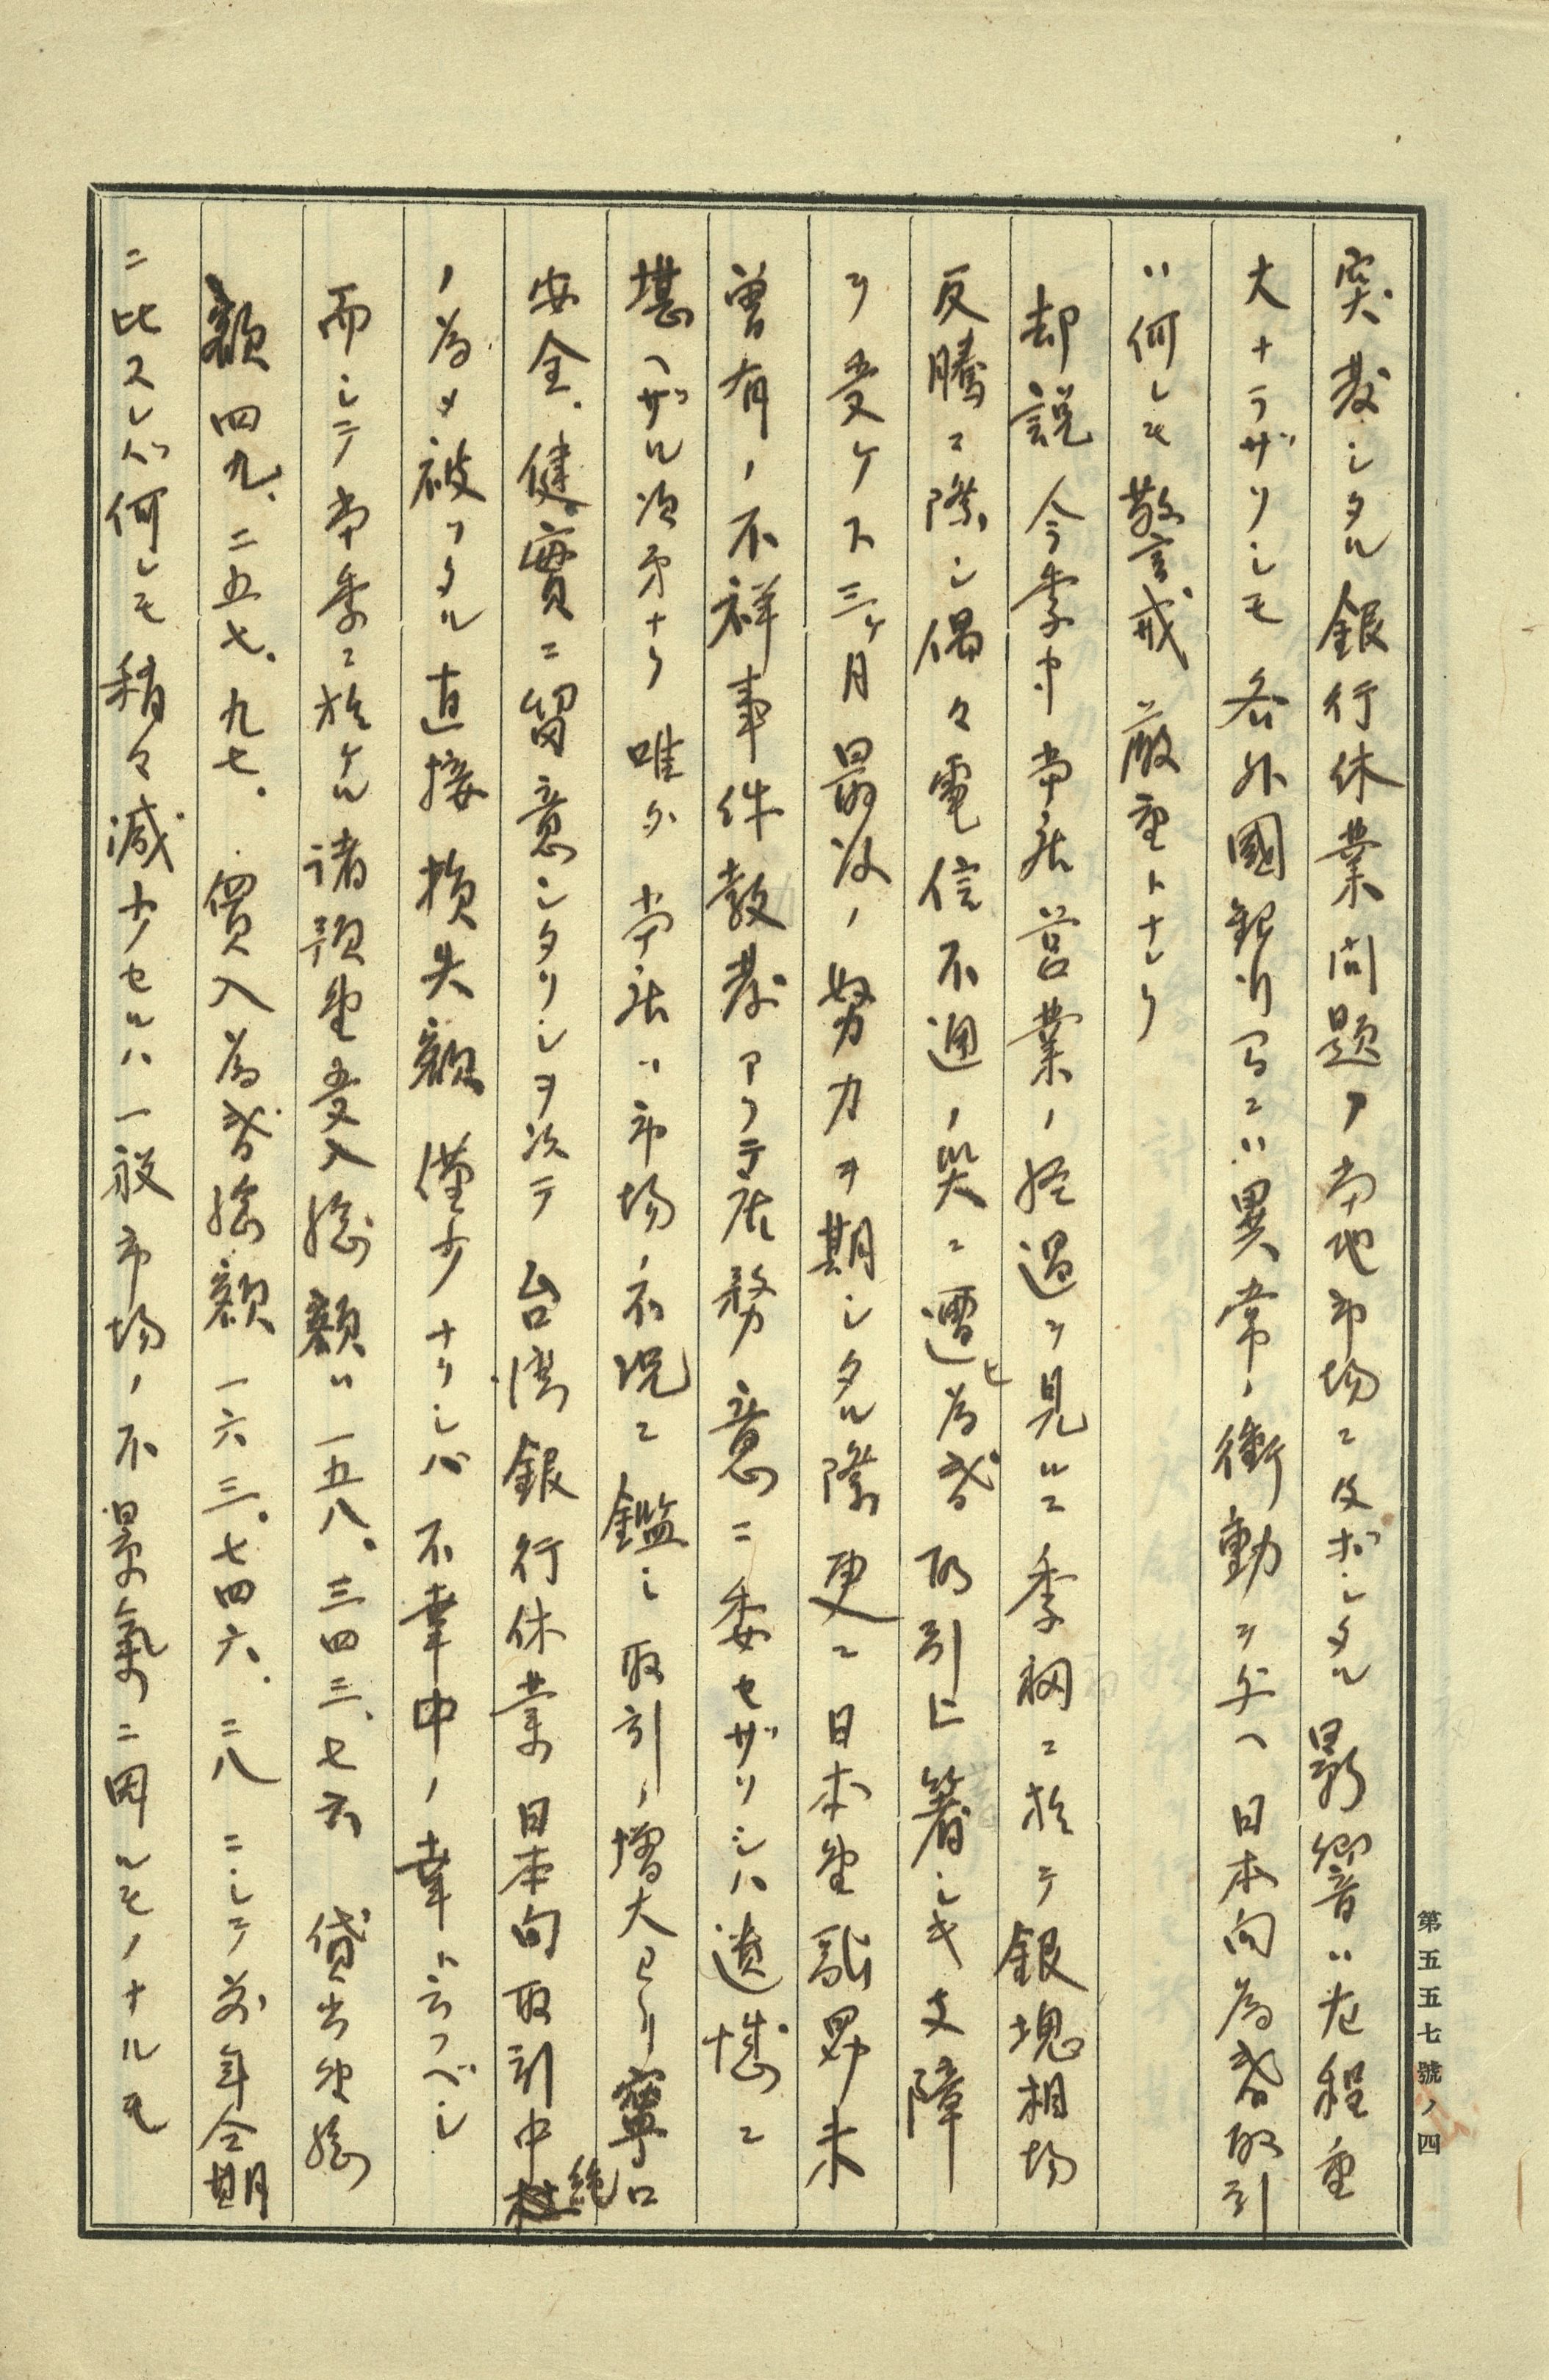 突發シタル銀行休業問題ノ當地市場ニ及ボシタル影響ハ左程重
大ナラザリシモ各外國銀行間ニハ異常ノ衝動ヲ与ヘ日本向為替取引
ハ何レモ警戒嚴重トナレリ
却説今季中當店営業ノ経過ヲ見ルニ季初ニ於テ銀塊相場
反騰ニ際シ偶々電信不通ノ災ニ遭ヒ為替取引上著シキ支障
ヲ受ケ下三ヶ月最後ノ努力ヲ期シタル際更ニ日本金融界未
曽有ノ不祥事件数發アリテ店務意ニ委セザリシハ遺憾ニ
堪ヘザル次第ナリ唯ダ當店ハ市場ノ不況ニ鑑ミ取引ノ増大ヨリ寧ロ
安全、健實ニ留意シタリシヲ以テ台湾銀行休業日本向取引中絶
ノ為メ被リタル直接損失額僅少ナリシハ不幸中ノ幸ト云フベシ
而シテ當季ニ於ケル諸預金受入総額ハ一五八、三四三、七六 貸出金総
額四九、二五七、九七、買入為替総額一六三、七四六、二八ニシテ前年仝期
ニ比スレバ何レモ稍々減少セルハ一般市場ノ不景氣ニ因ルモノナルモ
第五五七號ノ四